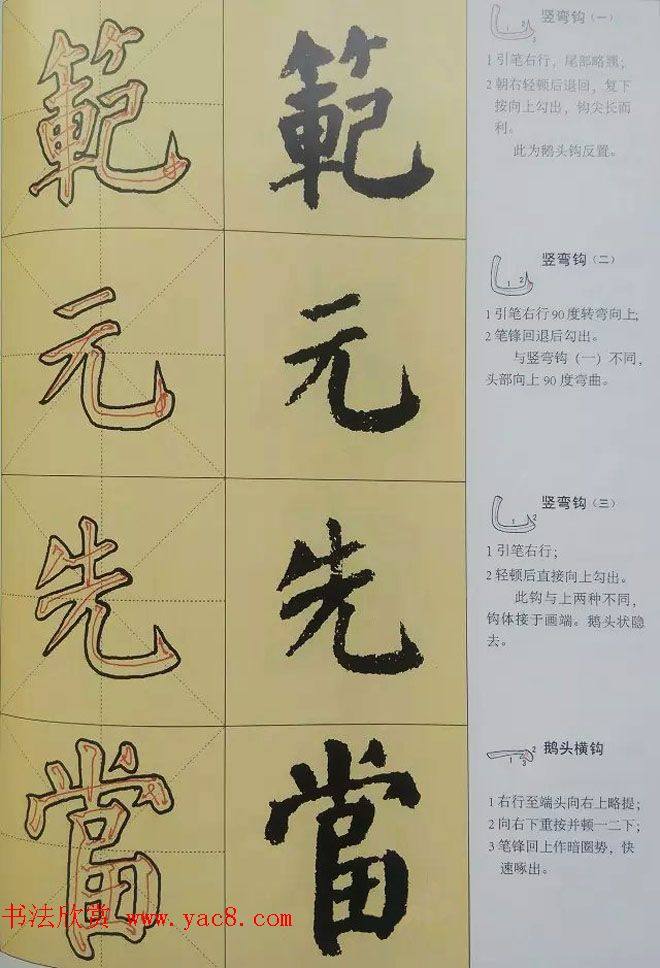 範 範
竖弯钩（一）
1 引笔右行，尾部略翘；
2 朝右轻顿后退回，复下
按向上勾出，钩尖长而
利。
此为鹅头钩反置。
元 元
竖弯钩（二）
1 引笔右行90度转弯向上；
2 笔锋回退后勾出。
与竖弯钩（一）不同，
头部向上90度弯曲。
先 先
竖弯钩（三）
1 引笔右行；
2 轻顿后直接向上勾出。
此钩与上两种不同，
钩体接于画端。鹅头状隐
去。
當 當
鹅头横钩
1 右行至端头向右上略提；
2 向右下重按并顿一二下；
3 笔锋回上作暗圈势，快
速啄出。
书法欣赏 www.yac8.com